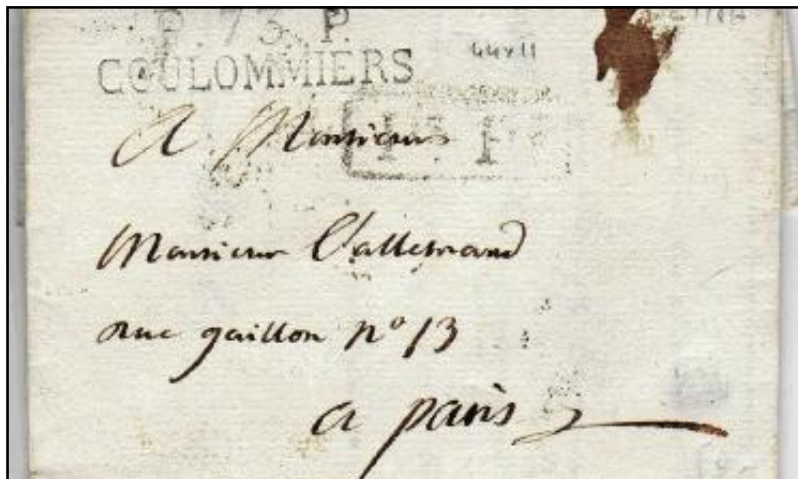 P. 73. P.
COULOMMIERS
44x11
A Monsieur
Monsieur Lallemand
rue gaillon n° 13
a paris